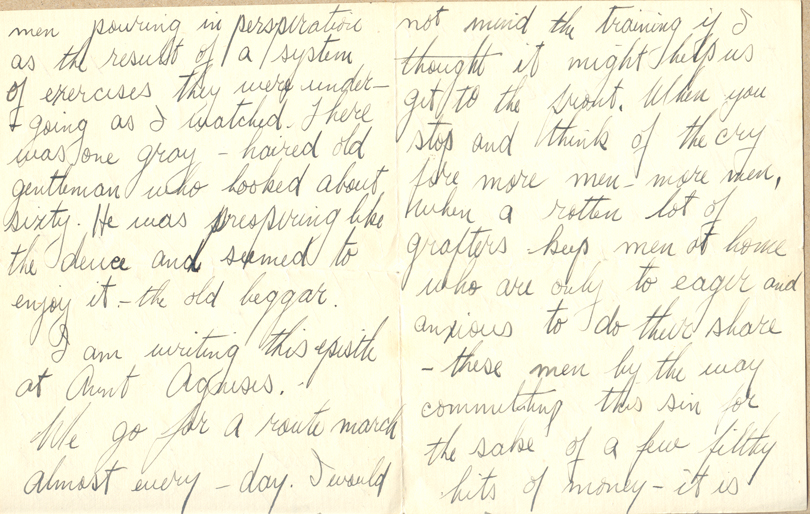 men pouring in perspiration
as the result of a system
of exercises they were under-
going as I watched. There
was one gray-haired old
gentleman who looked about
sixty. He was prespiring like
the deuce and seemed to
enjoy it - the old beggar.
I am writing this epistle
at Aunt Agneses.
We go for a route march
almost every-day. I would
not mind the training if I
thought it might help us
get to the front. When you
stop and think of the cry
fore more men - more men,
when a rotten lot of
grafters keep men at home
who are only to eager and
anxious to do their share
- these men by the way
committing this sin for
the sake of a few filthy
bits of money - it is